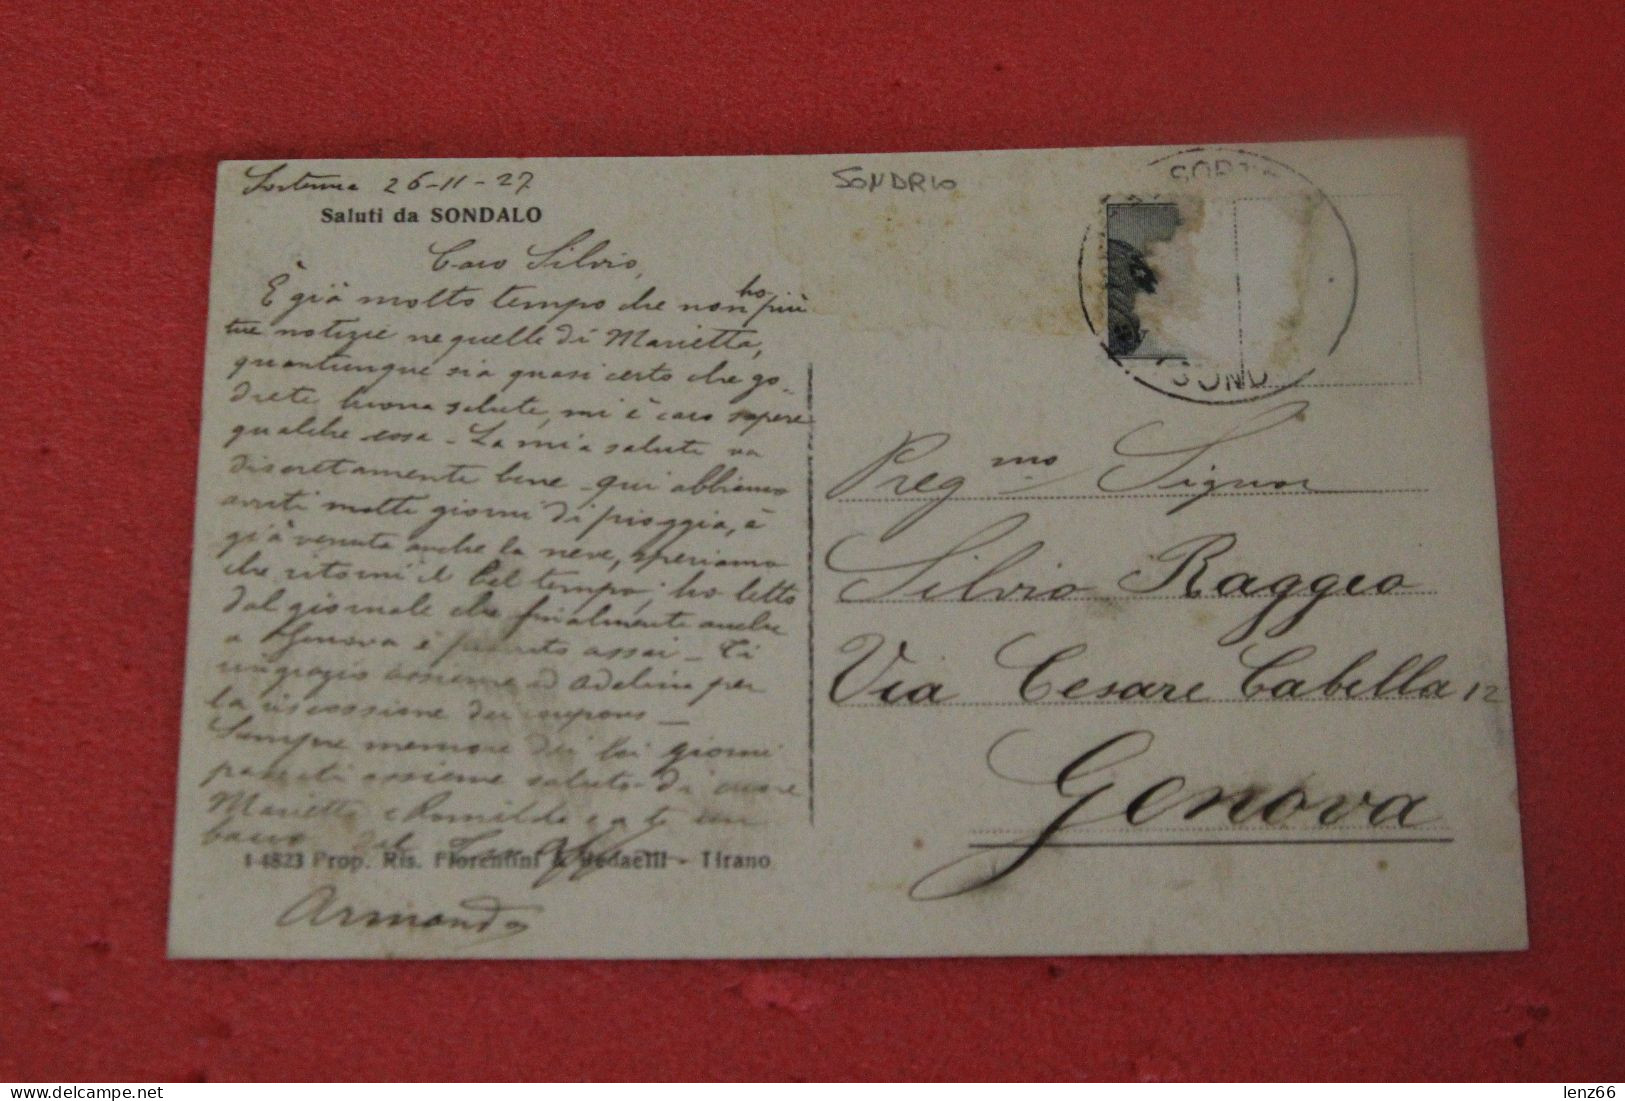 Sortenna 26-11-27
SONDRIO
Saluti da SONDALO
Caro Silvio,
È già molto tempo che non ho più
tue notizie ne quelle di Marietta,
quantunque sia quasi certo che go-
drete buona salute, mi è caro sapere
qualche cosa - La mia salute va
discretamente bene - qui abbiamo
avuti molti giorni di pioggia, è
già venuta anche la neve, speriamo
che ritorni il bel tempo; ho letto
dal giornale che finalmente anche
a Genova è piovuto assai - Ti
ringrazio assieme ad Adelina per
la riscossione dei coupons -
Sempre memore dei bei giorni
passati assieme saluto di cuore
Marietta e Romilda e a te un
bacio dal
Armando
14823 Prop. Ris. Fiorentini & Redaelli - Tirano
SORT
SOND
Preg mo Signor
Silvio Raggio
Via Cesare Cabella 12
Genova
lenz66